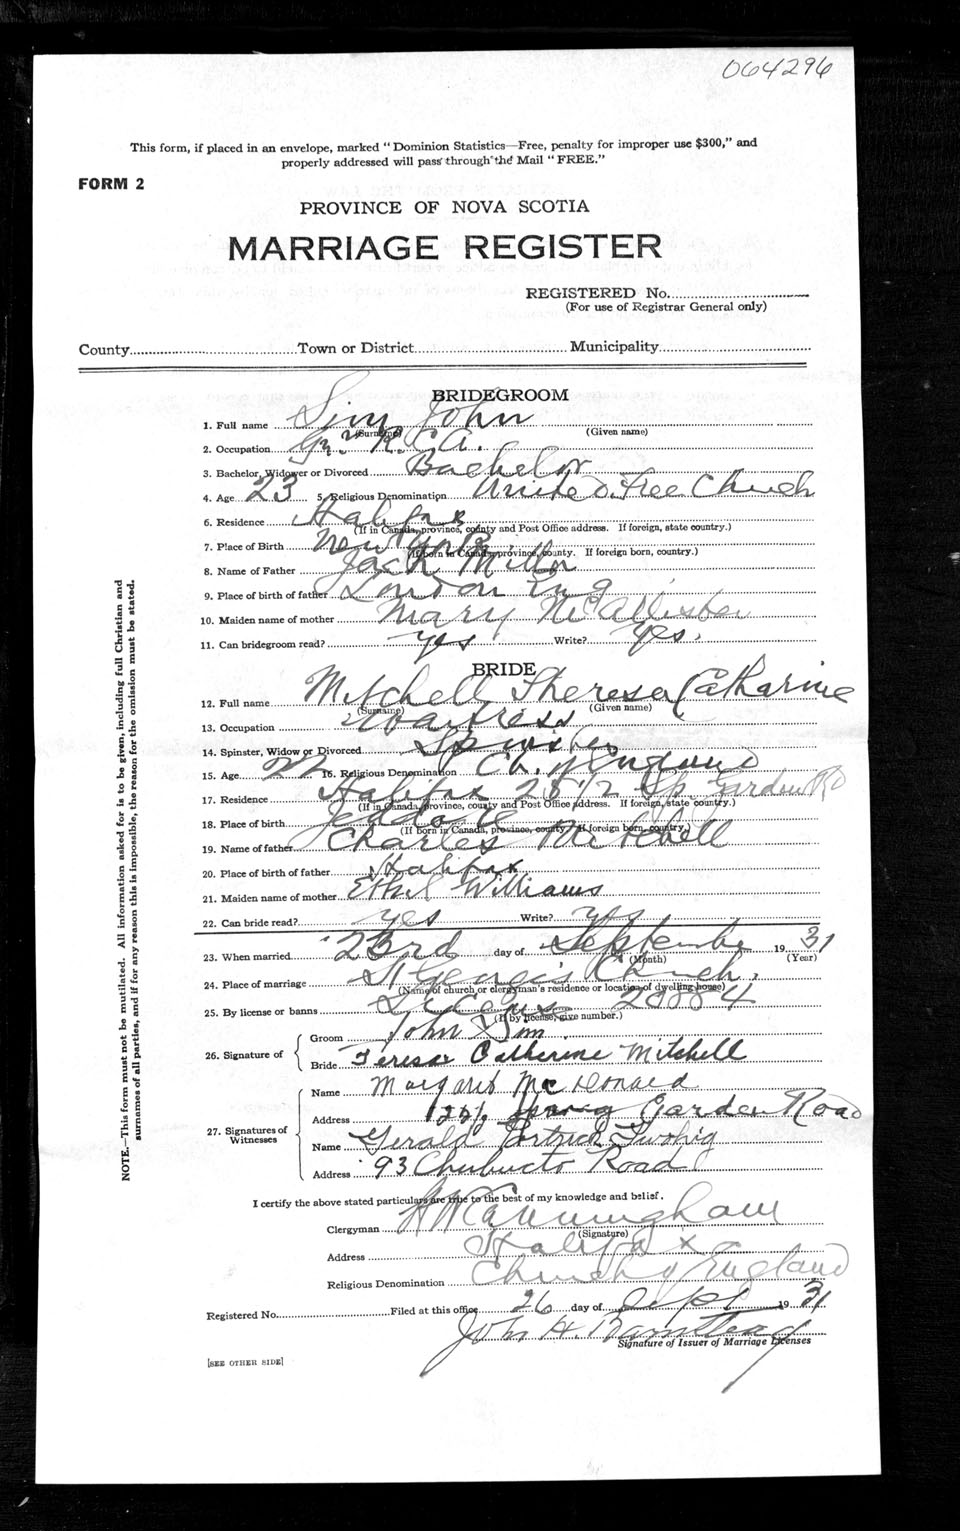 064296
This form, if placed in an envelope, marked "Dominion Statistics—Free, penalty for improper use $300," and
properly addressed will pass through the Mail "FREE."
FORM 2
PROVINCE OF NOVA SCOTIA
MARRIAGE REGISTER
REGISTERED No.
(For use of Registrar General only)
County Town or District Municipality
BRIDEGROOM
1. Full name Sim John
(Surname) (Given name)
2. Occupation Gnr R.C.A.
3. Bachelor, Widower or Divorced Bachelor
4. Age 23 5. Religious Denomination United Free Church
6. Residence Halifax
(If in Canada, province, county and Post Office address. If foreign, state country.)
7. Place of Birth New York
(If born in Canada, province, county. If foreign born, country.)
8. Name of Father Jack Miller
9. Place of birth of father London Eng
10. Maiden name of mother Mary McCallister
11. Can bridegroom read? yes Write? yes.
BRIDE
12. Full name Mitchell Theresa Catharine
(Surname) (Given name)
13. Occupation Waitress
14. Spinster, Widow or Divorced Spinster
15. Age 22 16. Religious Denomination Ch. of England
17. Residence Halifax 28 1/2 Sp Garden Rd
(If in Canada, province, county and Post Office address. If foreign, state country.)
18. Place of birth Jeddore
(If born in Canada, province, county. If foreign born, country.)
19. Name of father Charles Mitchell
20. Place of birth of father Halifax
21. Maiden name of mother Ethel Williams
22. Can bride read? yes Write? yes
23. When married 23rd day of September 19 31
(Month) (Year)
24. Place of marriage St George's Church.
(Name of church or clergyman's residence or location of dwelling house)
25. By license or banns License 20884
(If by license, give number.)
26. Signature of
Groom John Sim.
Bride Teresa Catherine Mitchell
27. Signatures of Witnesses
Name Margaret McDonald
Address Spring Garden Road
Name Gerald Patrick Twohig
Address 93 Chebucto Road
I certify the above stated particulars are true to the best of my knowledge and belief.
Clergyman H W Cunningham
(Signature)
Address Halifax
Religious Denomination Church of England
Registered No. Filed at this office 26 day of Sept 19 31
John H. Barnstead
Signature of Issuer of Marriage Licenses
[SEE OTHER SIDE]
NOTE.—This form must not be mutilated. All information asked for is to be given, including full Christian and
surnames of all parties, and if for any reason this is impossible, the reason for the omission must be stated.